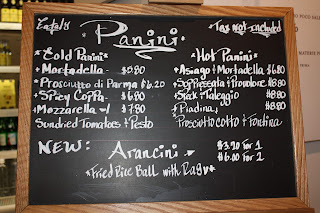 Eataly's
Panini
Tax not included
*Cold Panini*
*Mortadella - $5.80
*Prosciutto di Parma $6.20
*Spicy Coppa $6.80
*Mozzarella - $7.80
Sundried Tomatoes + Pesto
*Hot Panini*
*Asiago + Mortadella $6.80
*Soppressata + Provolone $8.80
*Speck + Taleggio $8.80
*Piadina, $8.80
Prosciutto cotto + Fontina
NEW: Arancini
$3.20 for 1
$6.00 for 2
*Fried Rice Ball with Ragu*